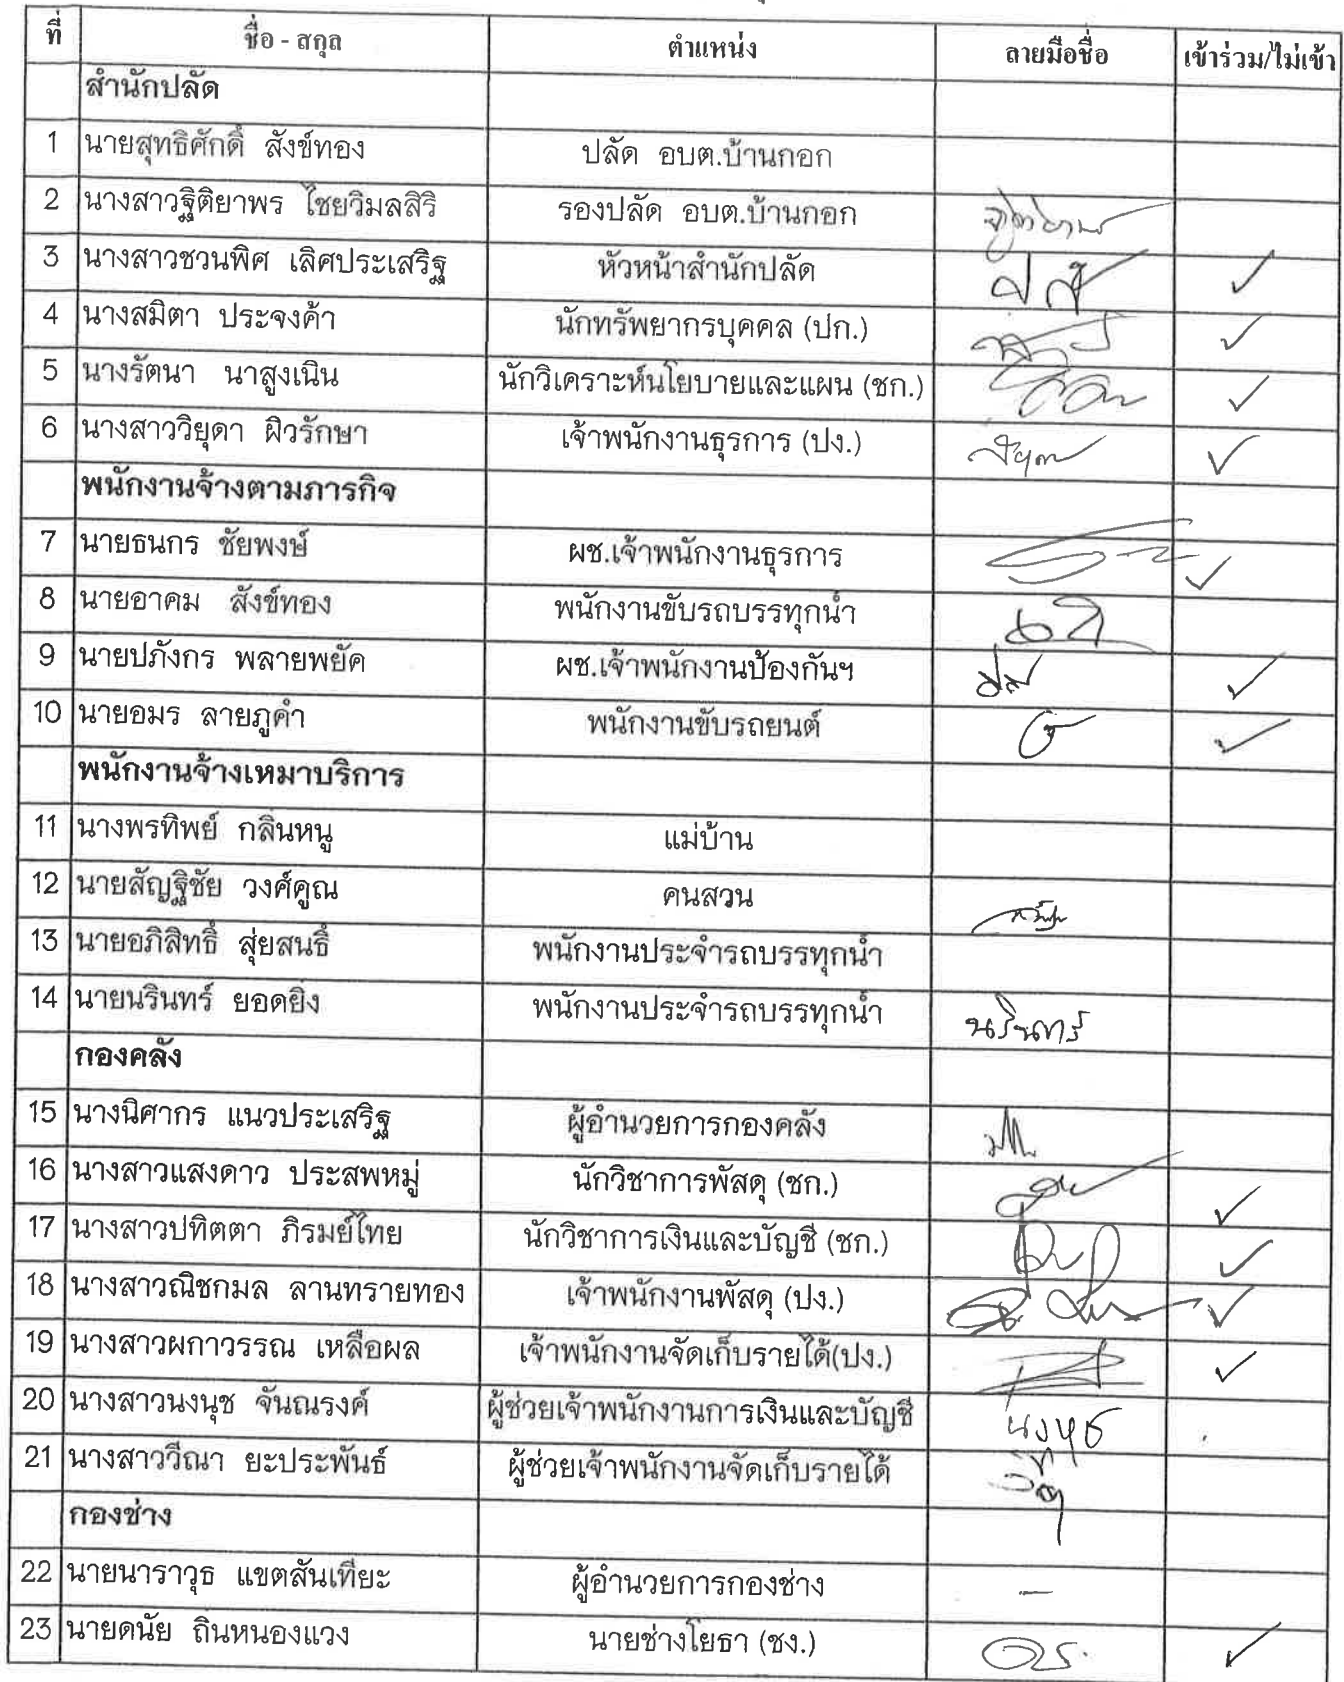 ที่ ชื่อ - สกุล ตำแหน่ง ลายมือชื่อ เข้าร่วม/ไม่เข้า
สำนักปลัด
1 นายสุทธิศักดิ์ สังข์ทอง ปลัด อบต.บ้านกอก
2 นางสาวฐิติยาพร ไชยวิมลสิริ รองปลัด อบต.บ้านกอก
3 นางสาวชวนพิศ เลิศประเสริฐ หัวหน้าสำนักปลัด ✓
4 นางสมิตา ประจงค้า นักทรัพยากรบุคคล (ปก.) ✓
5 นางรัตนา นาสูงเนิน นักวิเคราะห์นโยบายและแผน (ชก.) ✓
6 นางสาววิยุดา ผิวรักษา เจ้าพนักงานธุรการ (ปง.) ✓
พนักงานจ้างตามภารกิจ
7 นายธนกร ชัยพงษ์ ผช.เจ้าพนักงานธุรการ ✓
8 นายอาคม สังข์ทอง พนักงานขับรถบรรทุกน้ำ
9 นายปภังกร พลายพยัค ผช.เจ้าพนักงานป้องกันฯ ✓
10 นายอมร ลายภูคำ พนักงานขับรถยนต์ ✓
พนักงานจ้างเหมาบริการ
11 นางพรทิพย์ กลิ่นหนู แม่บ้าน
12 นายสัญฐิชัย วงศ์คูณ คนสวน
13 นายอภิสิทธิ์ สุ่ยสนธิ์ พนักงานประจำรถบรรทุกน้ำ
14 นายนรินทร์ ยอดยิ่ง พนักงานประจำรถบรรทุกน้ำ นรินทร์
กองคลัง
15 นางนิศากร แนวประเสริฐ ผู้อำนวยการกองคลัง
16 นางสาวแสงดาว ประสพหมู่ นักวิชาการพัสดุ (ชก.) ✓
17 นางสาวปทิตตา ภิรมย์ไทย นักวิชาการเงินและบัญชี (ชก.) ✓
18 นางสาวณิชกมล ลานทรายทอง เจ้าพนักงานพัสดุ (ปง.) ✓
19 นางสาวผกาวรรณ เหลือผล เจ้าพนักงานจัดเก็บรายได้(ปง.) ✓
20 นางสาวนงนุช จันณรงค์ ผู้ช่วยเจ้าพนักงานการเงินและบัญชี นงนุช
21 นางสาววีณา ยะประพันธ์ ผู้ช่วยเจ้าพนักงานจัดเก็บรายได้
กองช่าง
22 นายนาราวุธ แขตสันเทียะ ผู้อำนวยการกองช่าง –
23 นายดนัย ถินหนองแวง นายช่างโยธา (ชง.) ✓